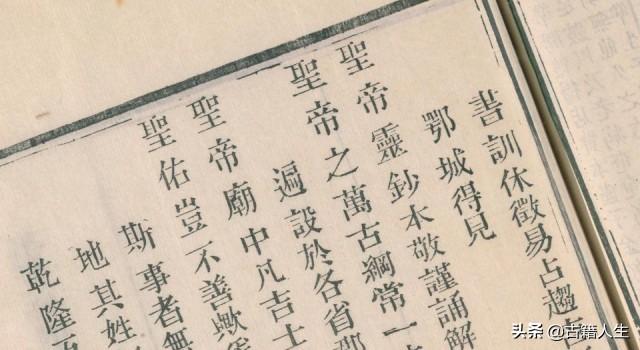 書訓休徵易占趨
鄂城得見
聖帝靈鈔本敬謹誦解
聖帝之萬古綱常一
遍設於各省郡
聖帝廟中凡吉士
聖佑豈不善歟
斯事者無
地其姓
乾隆
头条 @古籍人生